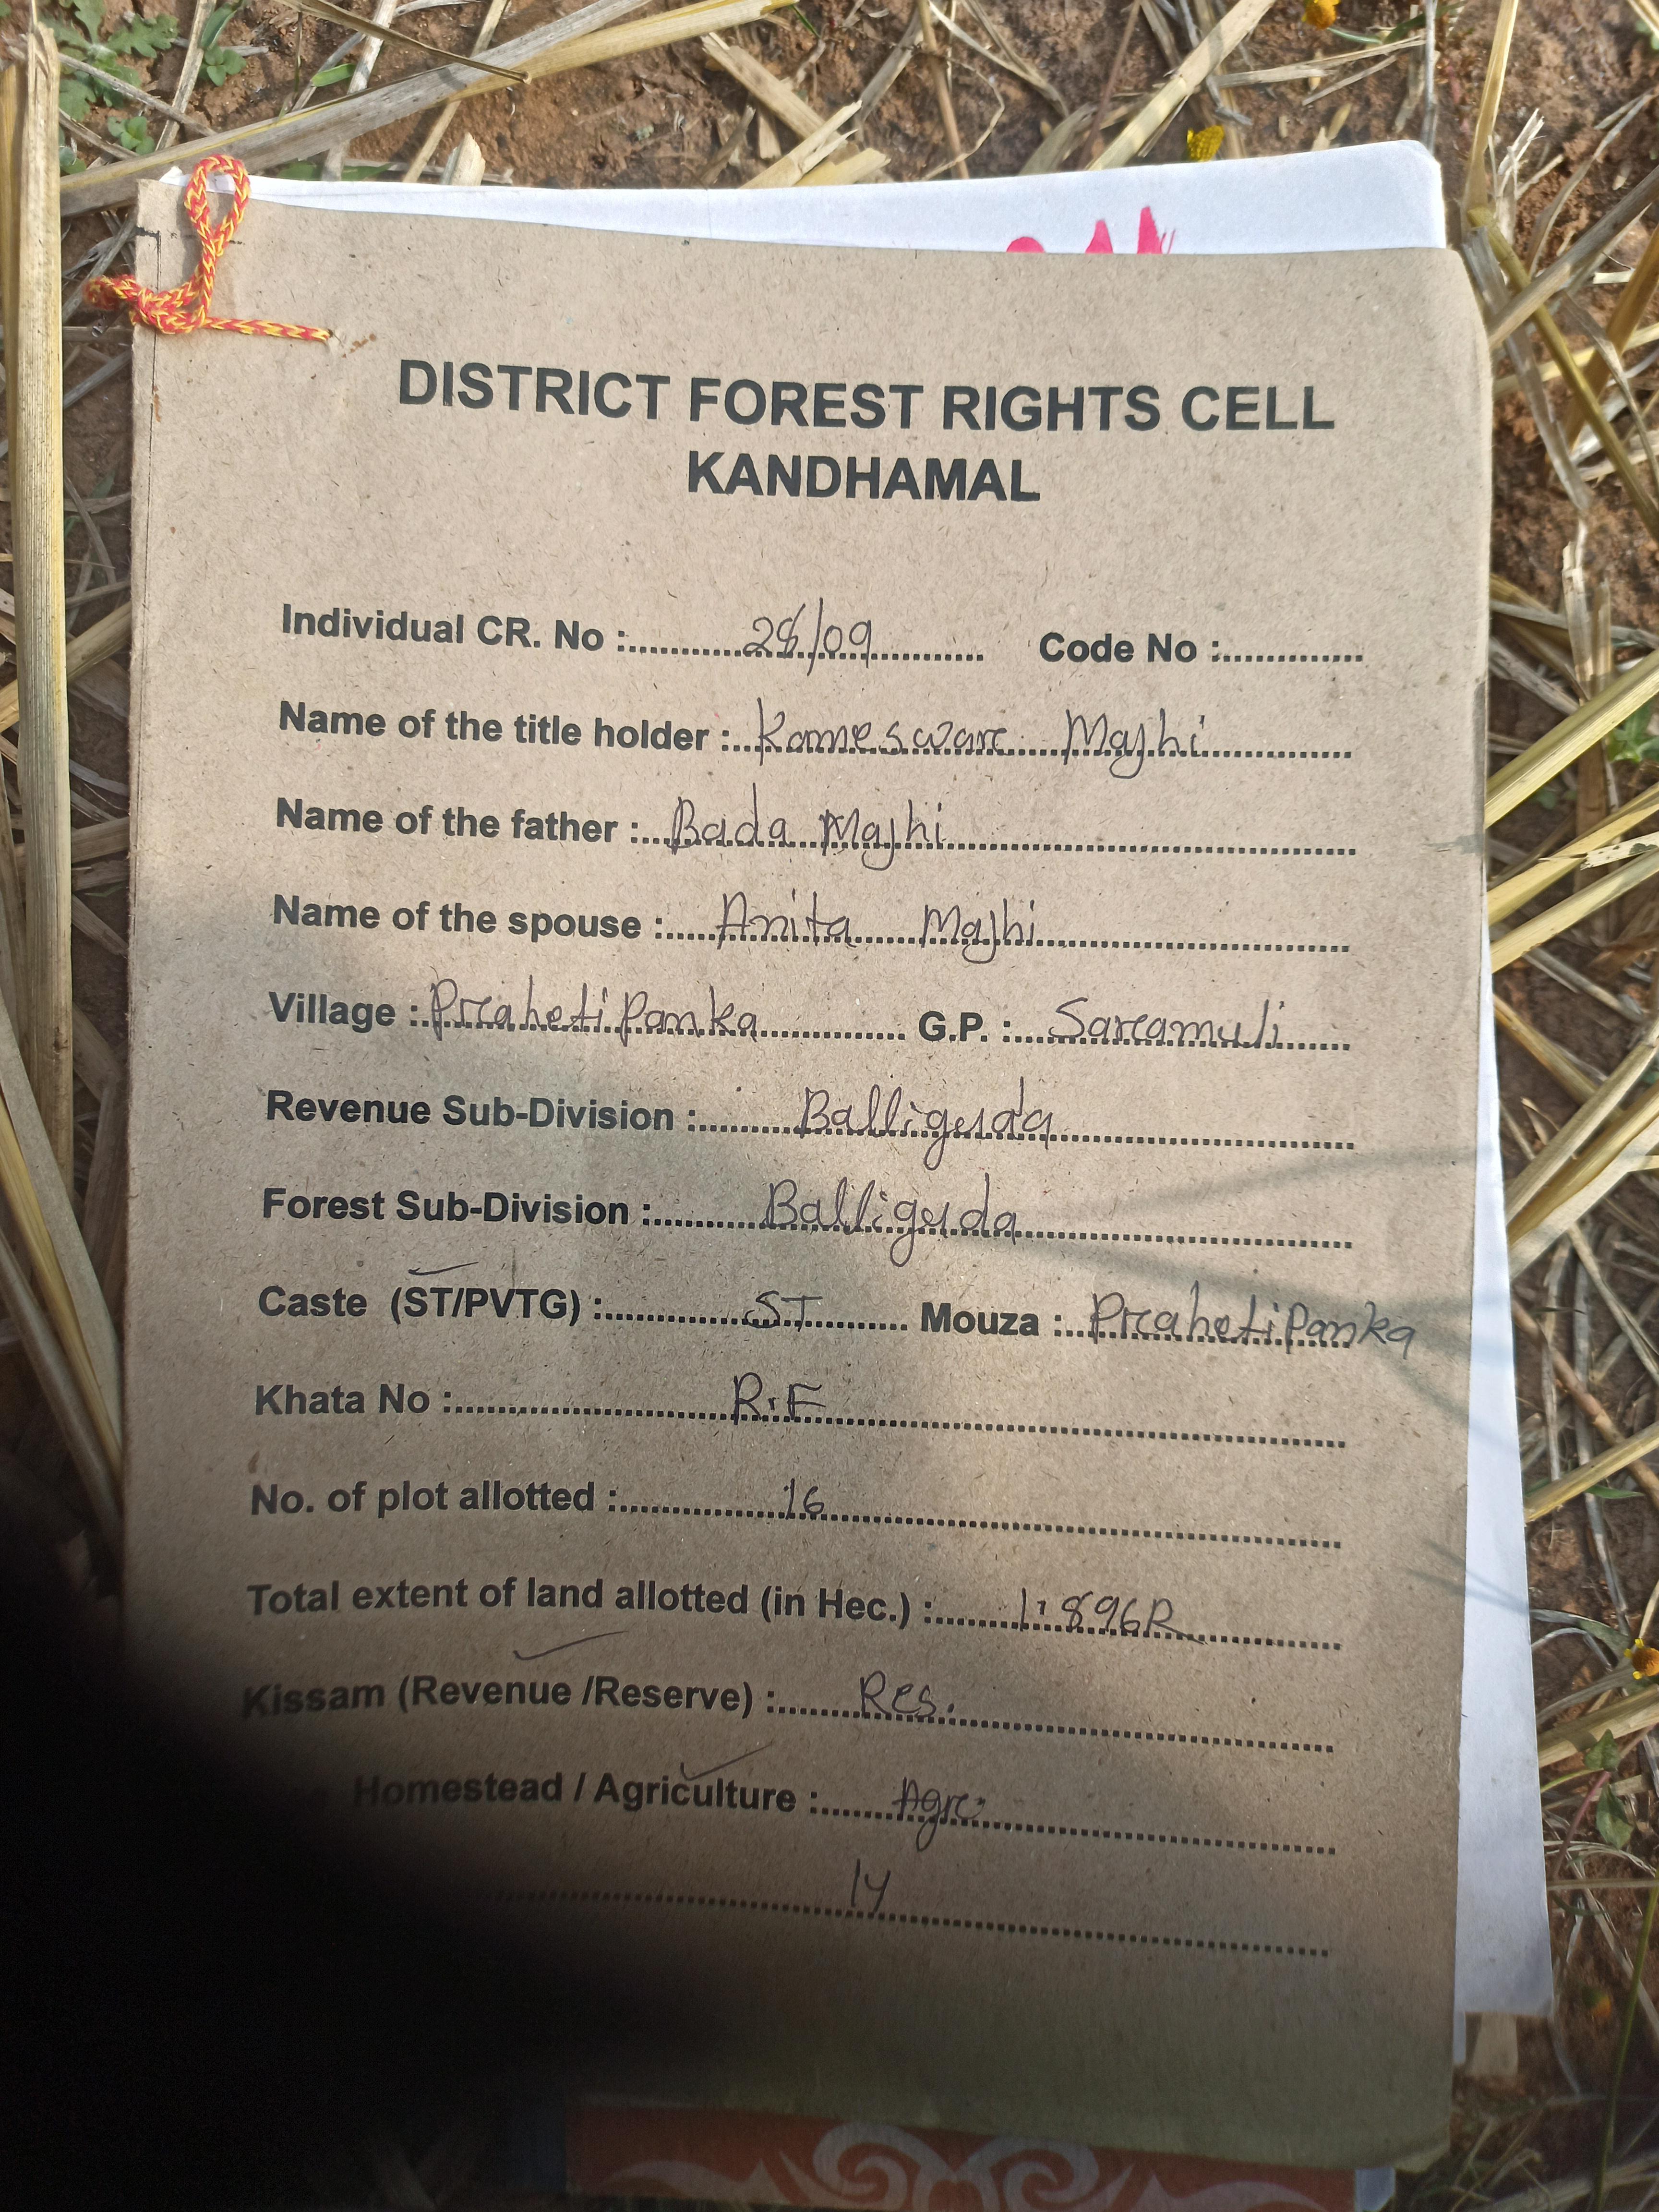 DISTRICT FOREST RIGHTS CELL
KANDHAMAL
Individual CR. No : 28/09 Code No :
Name of the title holder : Kameswarc Majhi
Name of the father : Bada Majhi
Name of the spouse : Anita Majhi
Village : PrcahetiPanka G.P. : Sarcamuli
Revenue Sub-Division : Balliguda
Forest Sub-Division : Balliguda
Caste (ST/PVTG) : ST Mouza : PrcahetiPanka
Khata No : R.F
No. of plot allotted : 16
Total extent of land allotted (in Hec.) : 1.896R
Kissam (Revenue /Reserve) : Res.
Homestead / Agriculture : Agrc.
14